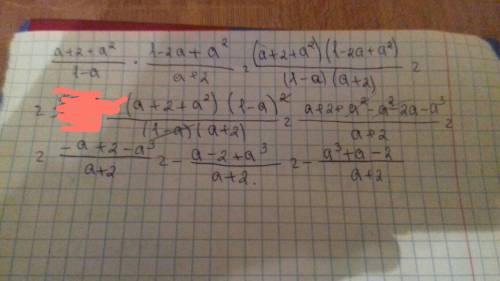 (a+2+a²)/(1-a) · (1-2a+a²)/(a+2) = ((a+2+a²)(1-2a+a²))/((1-a)(a+2)) =
= ((a+2+a²)(1-a)²)/((1-a)(a+2)) = (a+2+a²-a²-2a-a³)/(a+2) =
= (-a+2-a³)/(a+2) = -(a-2+a³)/(a+2) = -(a³+a-2)/(a+2)